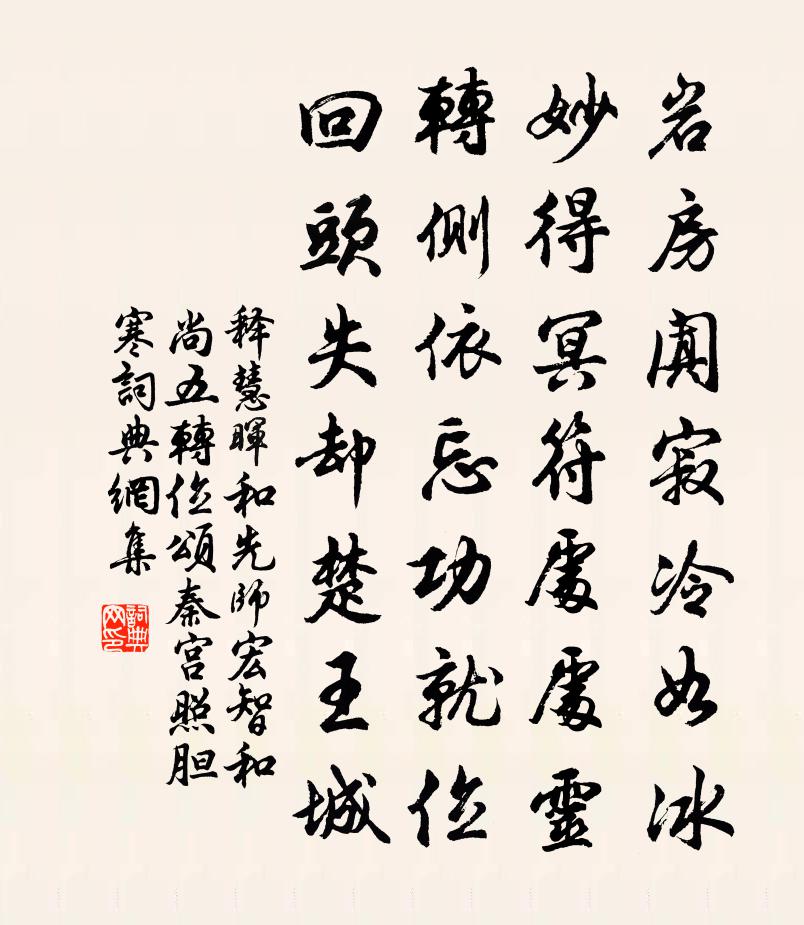 岩房闃寂冷如冰
妙得冥符處處靈
轉側依忘功就位
回頭失却楚王城
释慧暉和先師宏智和
尚五轉位頌秦宮照胆
寒詞典網集
詞典网印